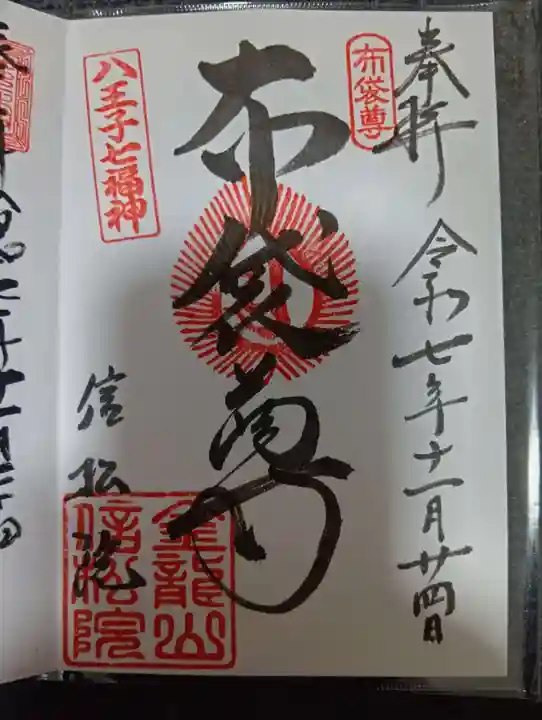 奉拝
令和七年十一月廿四日
布袋尊
布袋尊
八王子七福神
信松院
金龍山
信松院